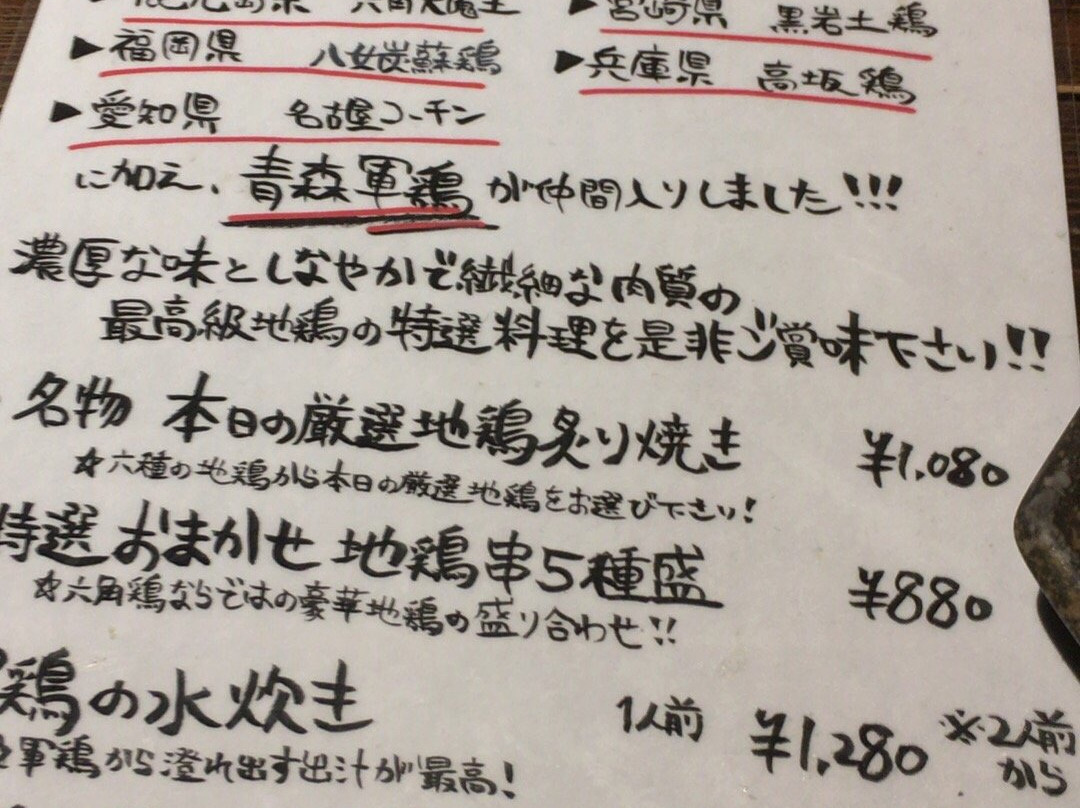 六角大魔王
▶宮崎県 黒岩土鶏
▶福岡県 八女炭蘇鶏
▶兵庫県 高坂鶏
▶愛知県 名古屋コーチン
に加え、青森軍鶏が仲間入りしました!!!
濃厚な味としなやかで繊細な肉質の
最高級地鶏の特選料理を是非ご賞味下さい!!
名物 本日の厳選地鶏炙り焼き ¥1,080
☆六種の地鶏から本日の厳選地鶏をお選び下さい!
特選おまかせ地鶏串5種盛 ¥880
☆六角鶏ならではの豪華地鶏の盛り合わせ!!
鶏の水炊き 1人前 ¥1,280 ※2人前から
軍鶏から溢れ出す出汁が最高!